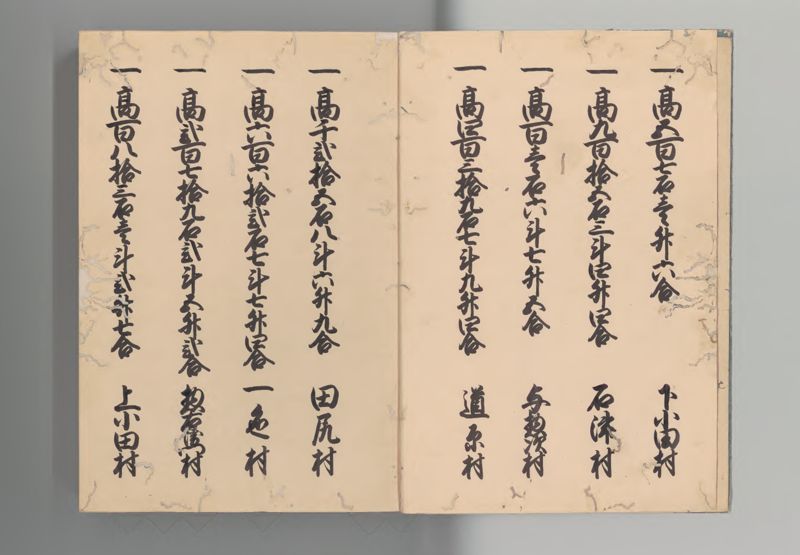 一高五百七石壱升六合 下小田村
一高九百拾五石三斗四升四合 石津村
一高百壱石六斗七升五合 与惣次村
一高四百三拾九石七斗九升四合 道原村
一高千弐拾五石八斗六升九合 田尻村
一高六百六拾弐石七斗七升四合 一色村
一高弐百七拾九石弐斗五升弐合 惣右衛門村
一高百八拾三石壱斗弐升七合 上小田村